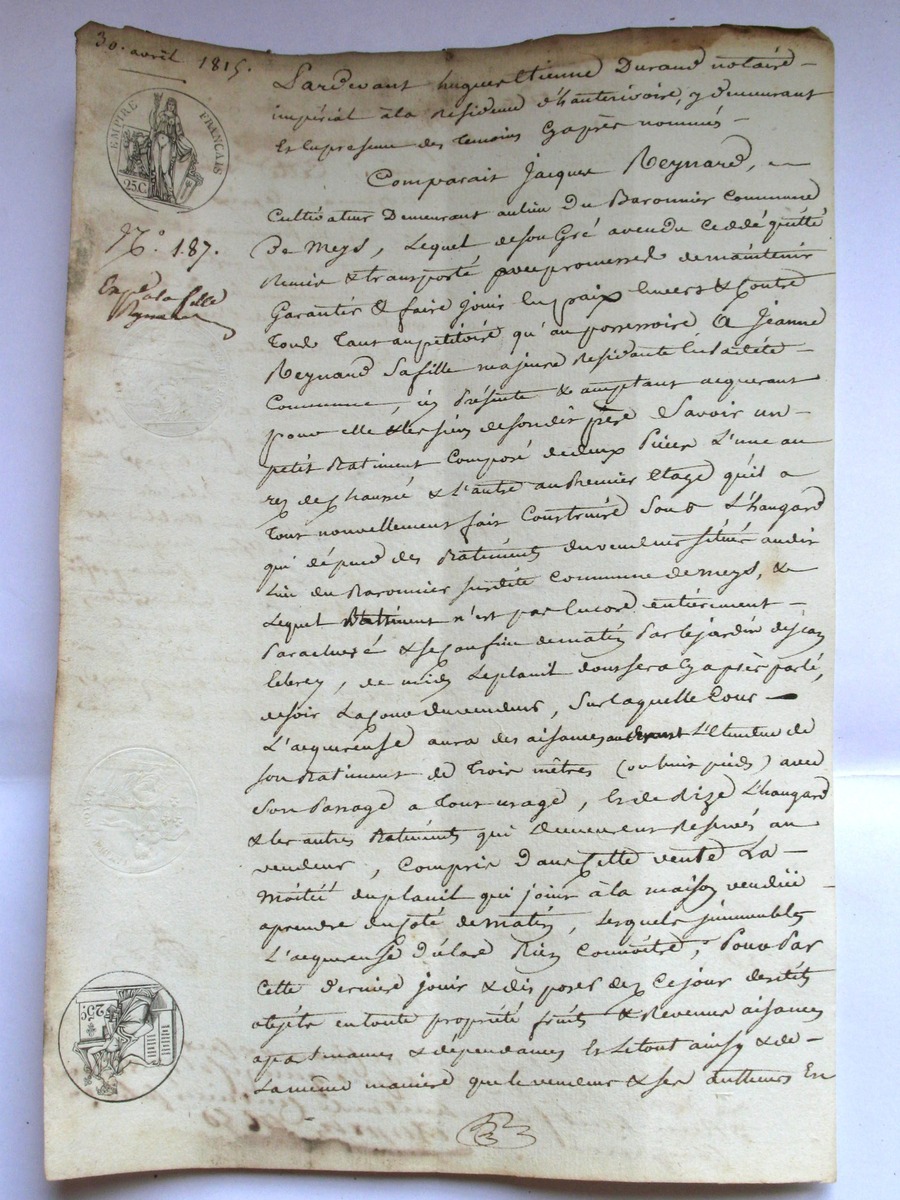 30. avril 1815.
EMPIRE FRANÇAIS
25.C
N.º 187.
la fille
Pardevant hugues Etienne Durand notaire
impérial à la résidence d'hauterivoire, y demeurant
Et En presence des temoins Cy après nommés
Comparait Jacques Reynard,
Cultivateur Demeurant au lieu Du Baronnier Commune
De Meys, Lequel de son Gré a vendu Ceddé quitté
Remis & transporté avec promesse de maintenir
Garantir & faire jouir En paix Envers & Contre
Tous Tant au petitoire qu'au possessoire, A Jeanne
Reynard Sa fille majeure Residante En la dite
Commune, ici Présente & acceptant acquerant
pour elle & les siens de son dit père Savoir un
petit Batiment Composé de deux Pièces L'une au
rez de Chaussé & L'autre au Premier Etage qu'il a
Tout nouvellement fait Construire Sous L'haugard
qui dépend des Batiments du vendeur situés au dit
Lieu du Baronnier susdite Commune de Meys, &
Lequel Batiment n'est pas Encore entièrement
Parachevé & se Confine de matin Par le jardin de jean
, de midy Le planil dont sera Cy après parlé,
de soir La Cour du vendeur, Sur laquelle Cour
L'acquereuse aura des aisances L'Etendue de
son Batiment de Trois mètres (ou huit pieds) avec
Son Passage a Tout usage, Et de Bize L'haugard
& les autres Batiments qui Demeurent Reservés au
vendeur, Compris Dans Cette vente La
Moitié du planil qui joint à la maison vendue
a prendre du Coté de matin, Lesquels immeubles
L'acquereuse Déclare Bien Connoitre, Pour Par
Cette Dernière jouir & disposer dez Ce jour desdits
objets en toute propriété fruits & Revenus aisances
apartenances & dependances Et Le tout ainsy & de
La même manière que le vendeur & ses autheurs En
25C